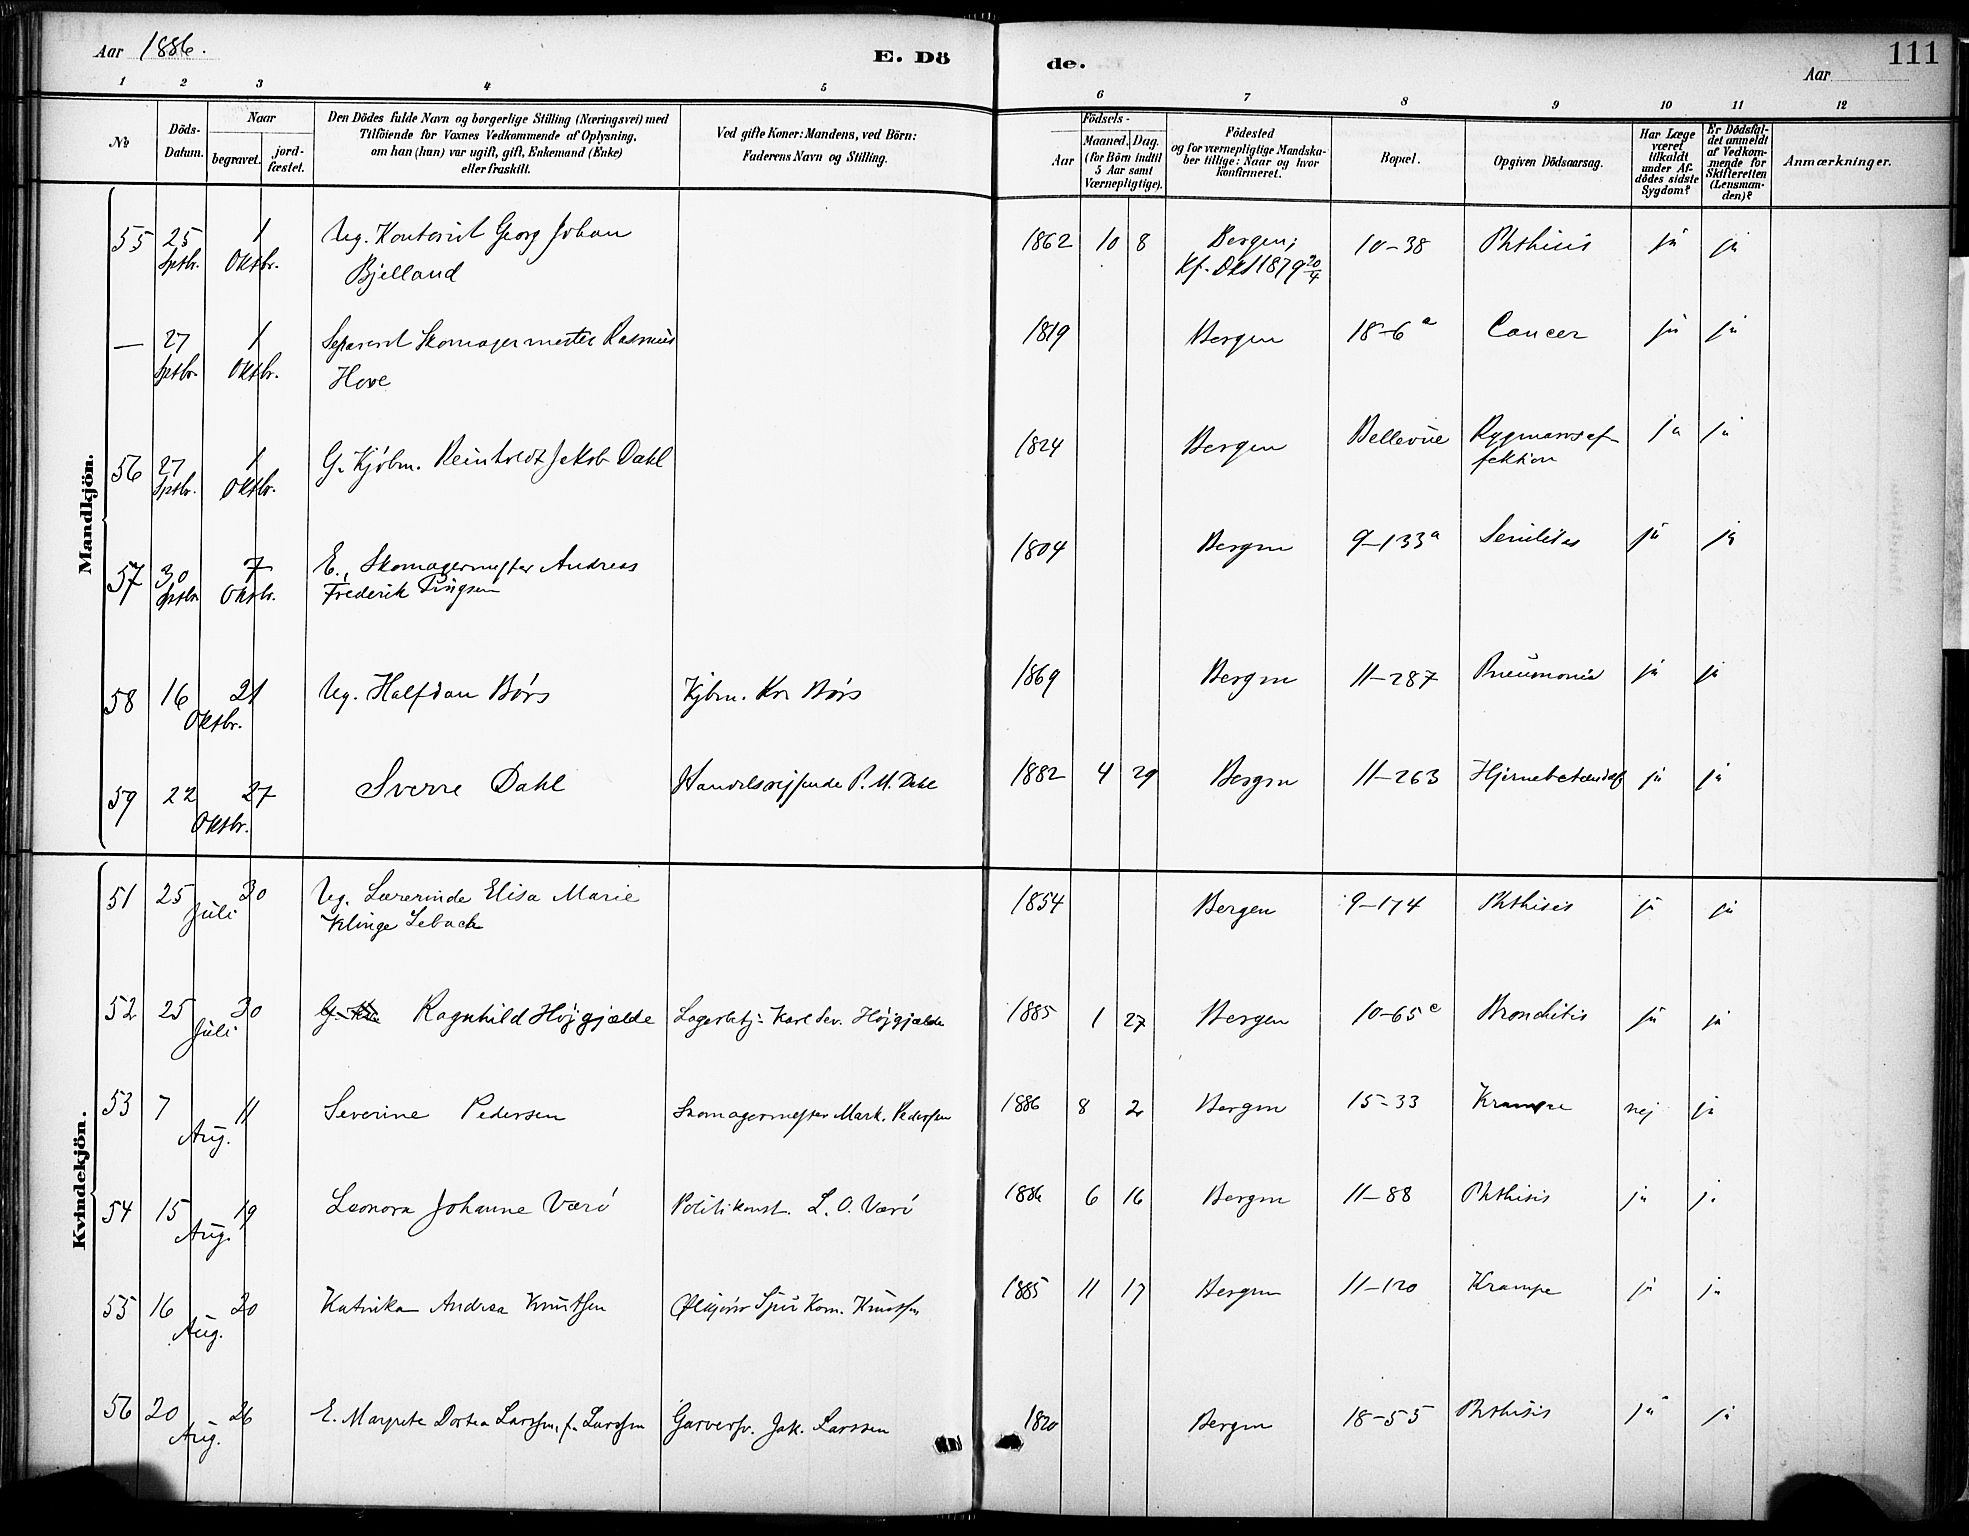 Aar 1886.
E. Dö
de.
Aar
111
1 2 3 4 5 6 7 8 9 10 11 12
No
Döds-Datum.
Naar
begravet.
jord-fæstet.
Den Dödes fulde Navn og borgerlige Stilling (Næringsvei) med
Tilföiende for Voxnes Vedkommende af Oplysning,
om han (hun) var ugift, gift, Enkemand (Enke)
eller fraskilt.
Ved gifte Koner: Mandens, ved Börn:
Faderens Navn og Stilling.
Födsels-
Aar
Maaned. Dag.
(for Börn indtil
5 Aar samt
Værnepligtige).
Födested
og for værnepligtige Mandska-
ber tillige: Naar og hvor
konfirmeret.
Bopæl.
Opgiven Dödsaarsag.
Har Læge
været
tilkaldt
under Af-
dödes sidste
Sygdom?
Er Dödsfal-
det anmeldt
af Vedkom-
mende for
Skifteretten
(Lensman-
den)?
Anmærkninger.
Mandkjön.
55 25 1 Ug. Kontorist Georg Johan 1862 10 8 Bergen; 10-38 Phthisis ja ja
Sptbr. Oktbr. Bjelland Kf. Dkk 1879 20/4
— 27 1 Separert Skomagermester Rasmus 1819 Bergen 18-6a Cancer ja ja
Sptbr. Oktbr. Hove
56 27 1 G. Kjöbm. Reinholdt Jakob Dahl 1824 Bergen Bellevue Rygmarvsaf- ja ja
Sptbr. Oktbr. fektion
57 30 7 E., Skomagermester Andreas 1804 Bergen 9-133a Senilitas ja ja
Sptbr. Oktbr. Frederik
58 16 21 Ug. Halfdan Børs Kjbm. Kr. Børs 1869 Bergen 11-287 Pneumonia ja ja
Oktbr.
59 22 27 Sverre Dahl Handelsreisende P. M. Dahl 1882 4 29 Bergen 11-263 ja ja
Oktbr.
Kvindekjön.
51 25 30 Ug. Lærerinde Elisa Marie 1854 Bergen 9-174 Phthisis ja ja
Juli Klinge Lebach
52 25 30 Ragnhild Højgjælde Lagerbetj. Karl Sev. Højgjælde 1885 1 27 Bergen 10-65c Bronchitis ja ja
Juli
53 7 11 Severine Pedersen Skomagermester Mark. Pedersen 1886 8 2 Bergen 15-33 Krampe nej ja
Aug.
54 15 19 Leonora Johanne Værö Politikonst. L. O. Værö 1886 6 16 Bergen 11-88 Phthisis ja ja
Aug.
55 16 20 Katinka Andrea Knutsen Kom. Knutsen 1885 11 17 Bergen 11-120 Krampe ja ja
Aug.
56 20 26 E. Margrete Dortea Larssen, f. Larssen Garversv. Jak. Larssen 1820 Bergen 18-55 Phthisis ja ja
Aug.